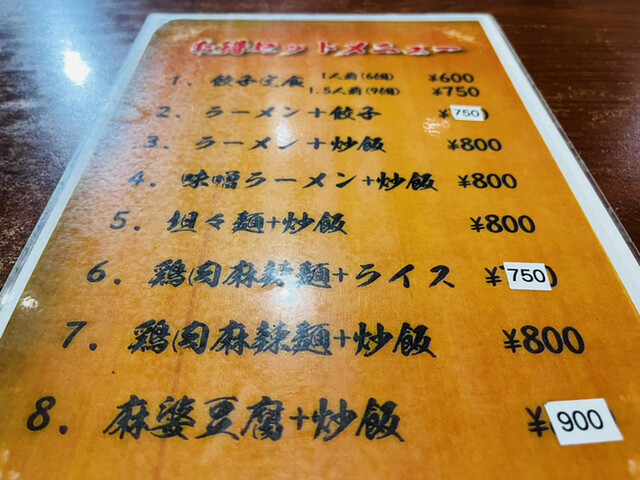 お得セットメニュー
1. 餃子定食 1人前(6個) ¥600
1.5人前(9個) ¥750
2. ラーメン+餃子 ¥750
3. ラーメン+炒飯 ¥800
4. 味噌ラーメン+炒飯 ¥800
5. 坦々麺+炒飯 ¥800
6. 鶏肉麻辣麺+ライス ¥750
7. 鶏肉麻辣麺+炒飯 ¥800
8. 麻婆豆腐+炒飯 ¥900